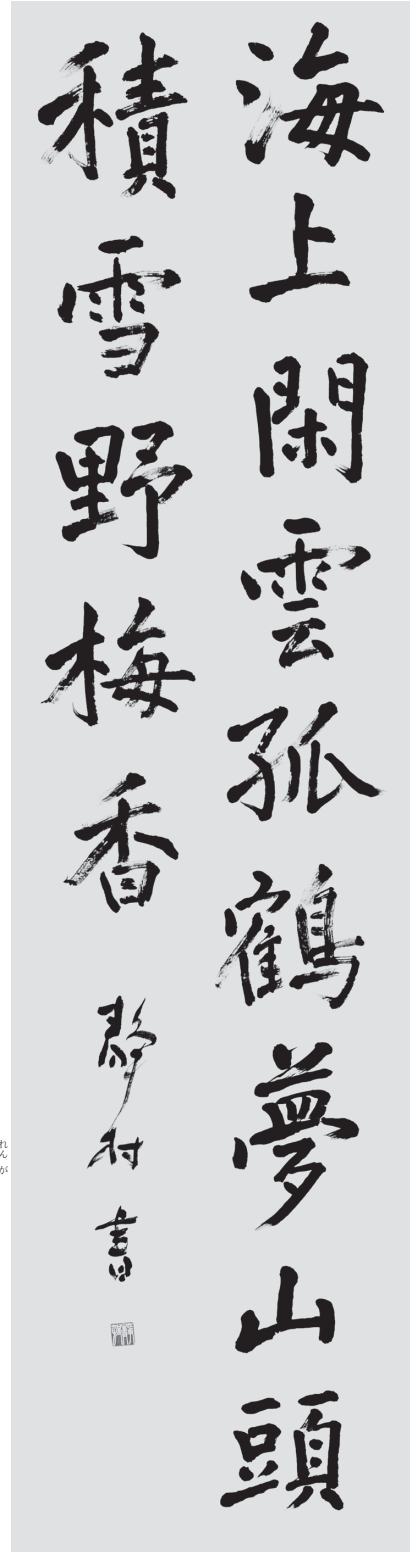 海上閑雲孤鶴夢山頭
積雪野梅香
静村書
れんが